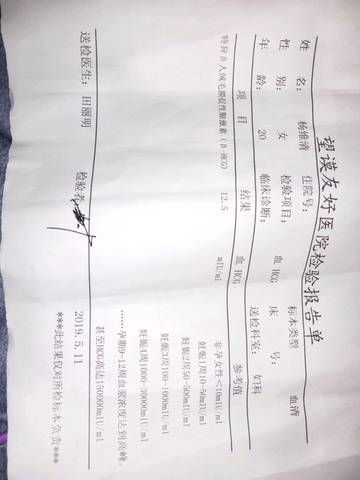 望谟友好医院检验报告单
姓 名： 杨维清 住院号： 标本类型 血清
性 别： 女 检验项目： 血 HCG 床 号：
年 龄： 20 临床诊断： 送检科室： 妇科
项 目 结果 血 HCG 参考值
特异β人绒毛膜促性腺激素（β-HCG） 12.5 mIU/ml 非孕女性<10mIU/ml
妊娠1周10-50mIU/ml
妊娠2周50-500mIU/ml
妊娠3周100-1000mIU/ml
妊娠4周1000-30000mIU/ml
……孕期9-12周血浆浓度达到高峰,
甚至HCG高达150000mIU/ml
送检医生： 田丽明 检验者 2019.5.11
***此结果仅对所检标本负责***